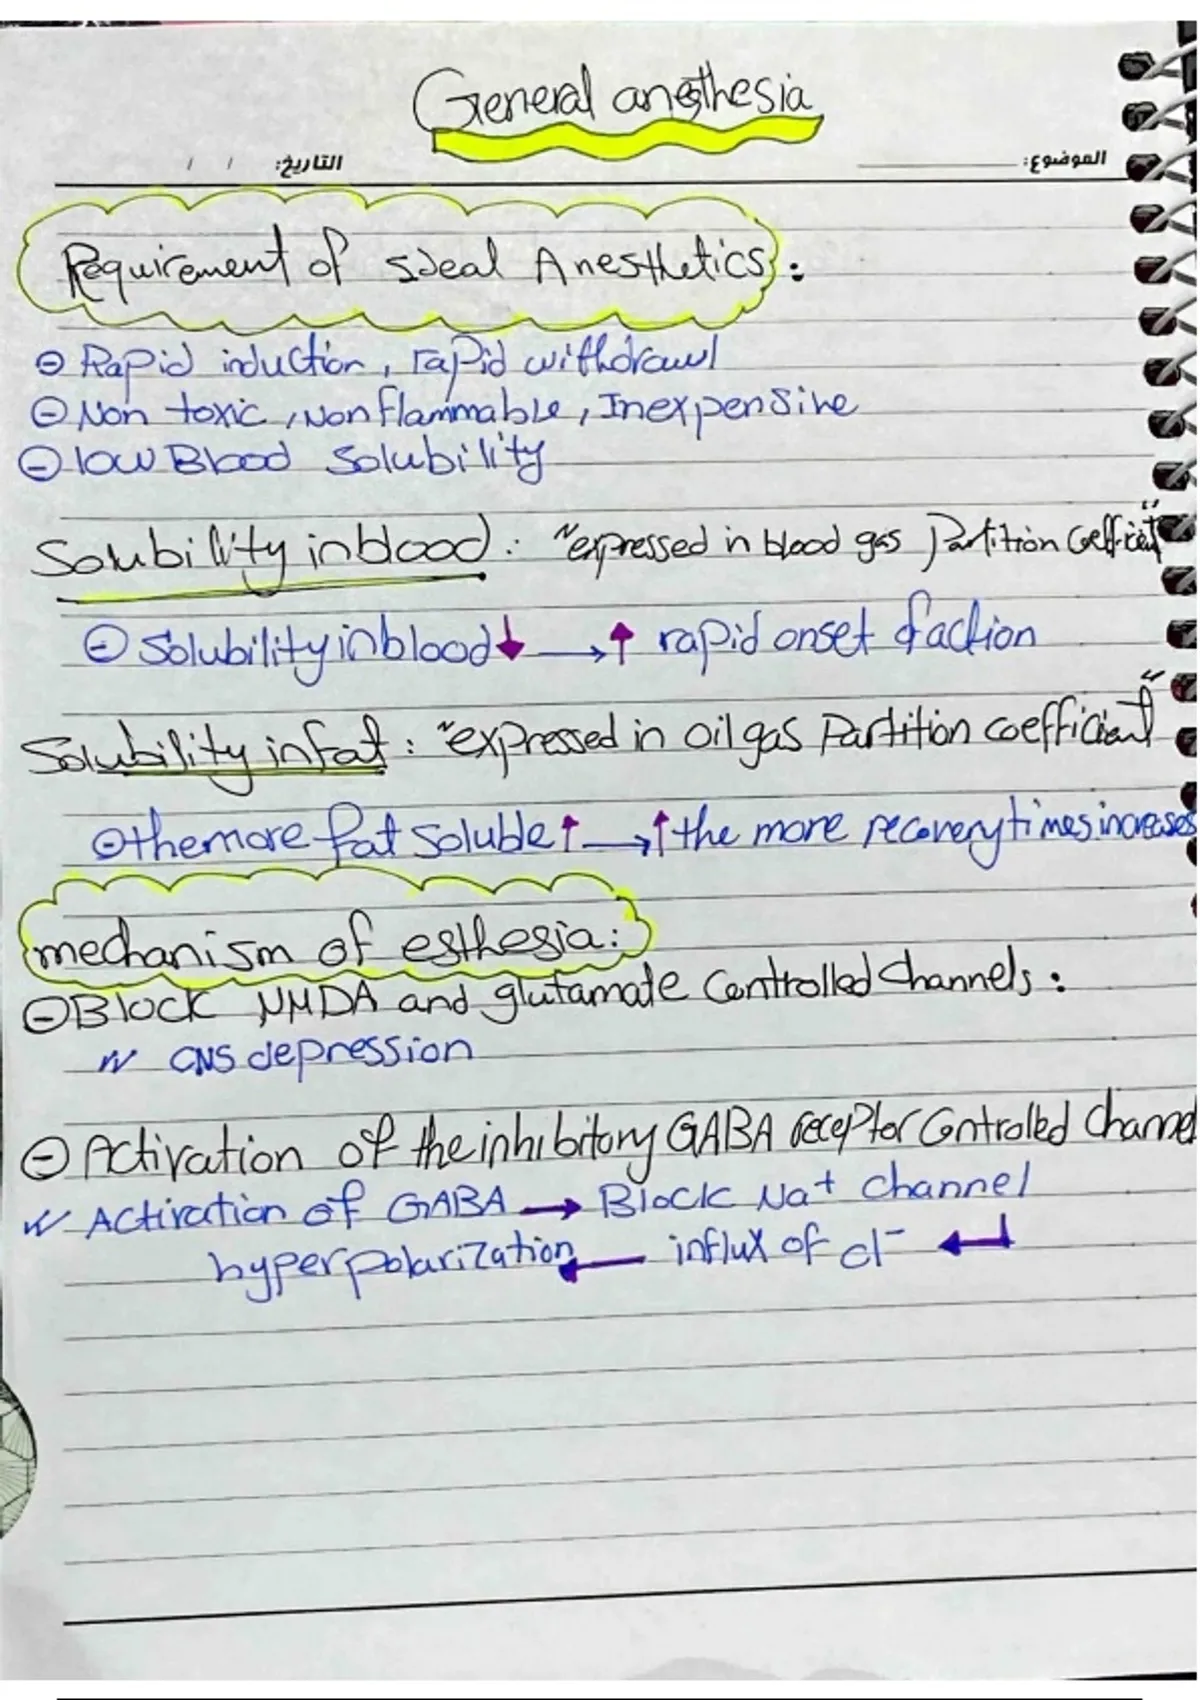 General anesthesia
الموضوع: التاريخ: / /
Requirement of Ideal Anesthetics:
Rapid induction, rapid withdrawl
Non toxic, Non flammable, Inexpensive
low Blood Solubility
Solubility in blood: "expressed in blood gas Partition Coefficient"
Solubility in blood↓ → ↑ rapid onset of action
Solubility in fat: "expressed in oil gas Partition coefficient"
the more fat soluble↑ → ↑ the more recovery times increases
mechanism of esthesia:
Block NMDA and glutamate Controlled Channels:
CNS depression
Activation of the inhibitory GABA receptor Controlled Channel
Activation of GABA → Block Na+ channel
hyperpolarization ← influx of cl- ↵